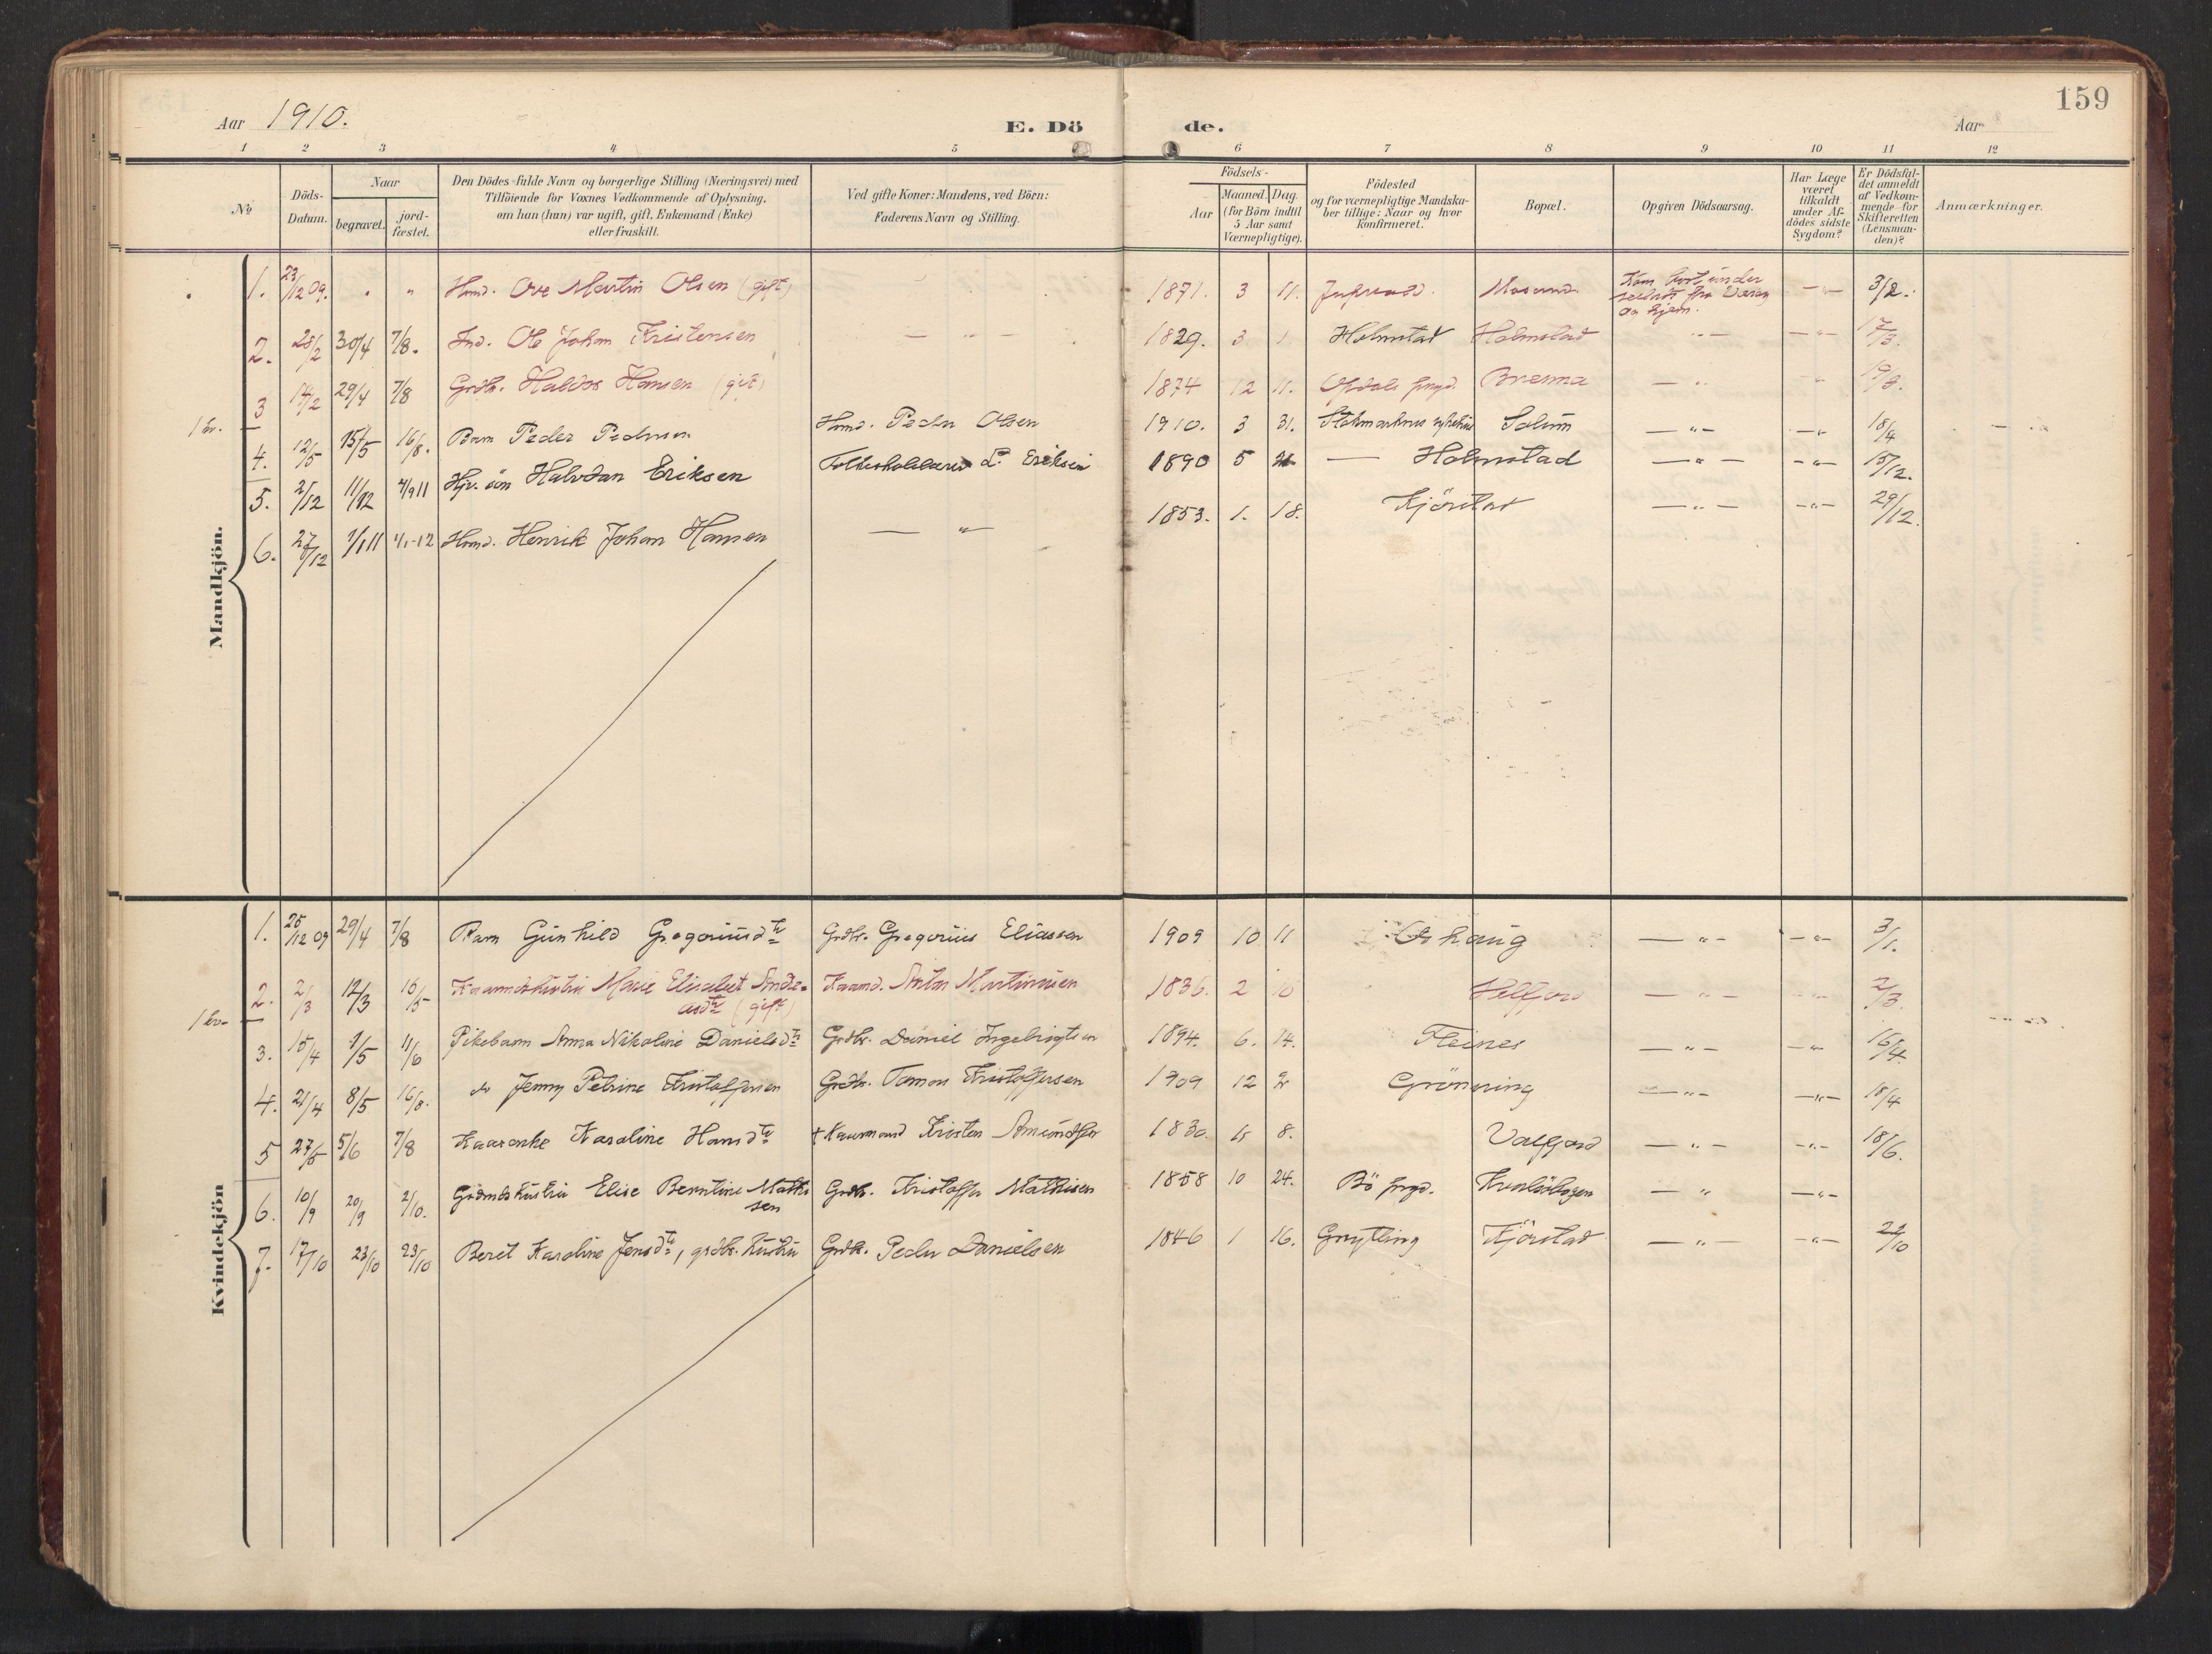 159
Aar 1910. E. Dö de. Aar
1 2 3 4 5 6 7 8 9 10 11 12
No
Döds-Datum.
Naar
begravet. jord-fæstet.
Den Dödes fulde Navn og borgerlige Stilling (Næringsvei) med
Tilföiende for Voxnes Vedkommende af Oplysning,
om han (hun) var ugift, gift, Enkemand (Enke)
eller fraskilt.
Ved gifte Koner: Mandens, ved Börn:
Faderens Navn og Stilling.
Födsels-
Aar
Maaned. Dag.
(for Börn indtil
5 Aar samt
Værnepligtige).
Födested
og for værnepligtige Mandska-
ber tillige: Naar og hvor
konfirmeret.
Bopæl.
Opgiven Dödsaarsag.
Har Læge
været
tilkaldt
under Af-
dödes sidste
Sygdom?
Er Dödsfal-
det anmeldt
af Vedkom-
mende for
Skifteretten
(Lensman-
den)?
Anmærkninger.
Mandkjön.
1. 23/12 09. " " Hmd. Ove Martin Olsen (gift) 1871. 3 11. Masund. —"— 3/2.
2. 28/2 30/4 7/8. Ind. Ole Johan Kristensen — " — 1829. 3 1 Holmstad Holmstad "— —"— 17/3.
3 14/2 29/4 7/8 Grdbr. Haldor Hansen (gift) 1874 12 11. Opdals prgd. Brenna — " "
1 kv.
4. 12/5 15/5 16/8. Barn Peder Pedersen Hmd. Peder Olsen 1910. 3 31. Stokmarknes sykehus Solum —"— —"— 18/4
5. 2/12 11/12 4/9 11 Hjv. sön Halvdan Eriksen Folkeskolelærer L. Eriksen 1890 5 — Holmstad —"— —"— 15/12.
6. 27/12 1/1 11 4/1-12 Hmd. Henrik Johan Hansen — " — 1853. 1. 18. Kjörstad —"— —"— 29/12.
Kvindekjön
1. 25/12 09 29/4 7/8 Barn Gunhild Gregoriusdtr Grdbr. Gregorius Eliassen 1909 10 11 Orhaug —"— —"— 3/1.
2. 2/3 12/3 16/5 Kaarmandskustru Marie Elisabet Andre-
asdtr (gift) Kaarmd. Anton Martinusen 1836. 2 10 Helfjord —"— 2/3.
1 kv.
3. 15/4 1/5 11/6 Pikebarn Anna Nikoline Danielsdtr Grdbr. Daniel Ingebrigtsen 1894. 6. 14. Fleines —"— —"— 16/4.
4. 21/4 8/5 16/8. do Jenny Petrine Kristoffersen Grdbr. Tomas Kristoffersen 1909 12 2 Grönning —"— —"— 18/4
5 27/5 5/6 7/8 Kaarenke Karoline Hansdtr † Kaarmand Kristen Amundsen 1830. 8. Valfjord —"— —"— 18/6.
6. 10/9 20/9 2/10. Grdmdskustru Elise Berntine Mathi
sen Grdbr. Kristoffer Mathisen 1858 10 24. Bö prgd. Kvalsöbogen — " —"—
7. 17/10 23/10 23/10 Beret Karoline Jensdtr, grdbr. kustru Grdbr. Peder Danielsen 1846 1 16. Gnytling Kjörstad —"— —"— 22/10